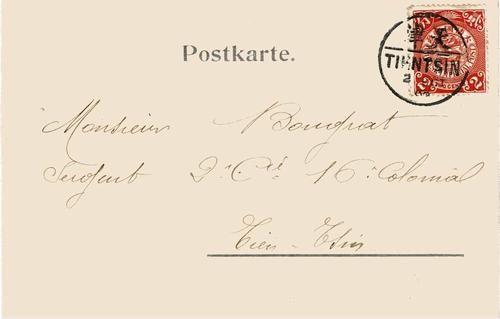 Postkarte.
津 天
TIENTSIN
2 2
Monsieur Bougrat
Sergent 2e Cie 16e Colonial
Tien-Tsin